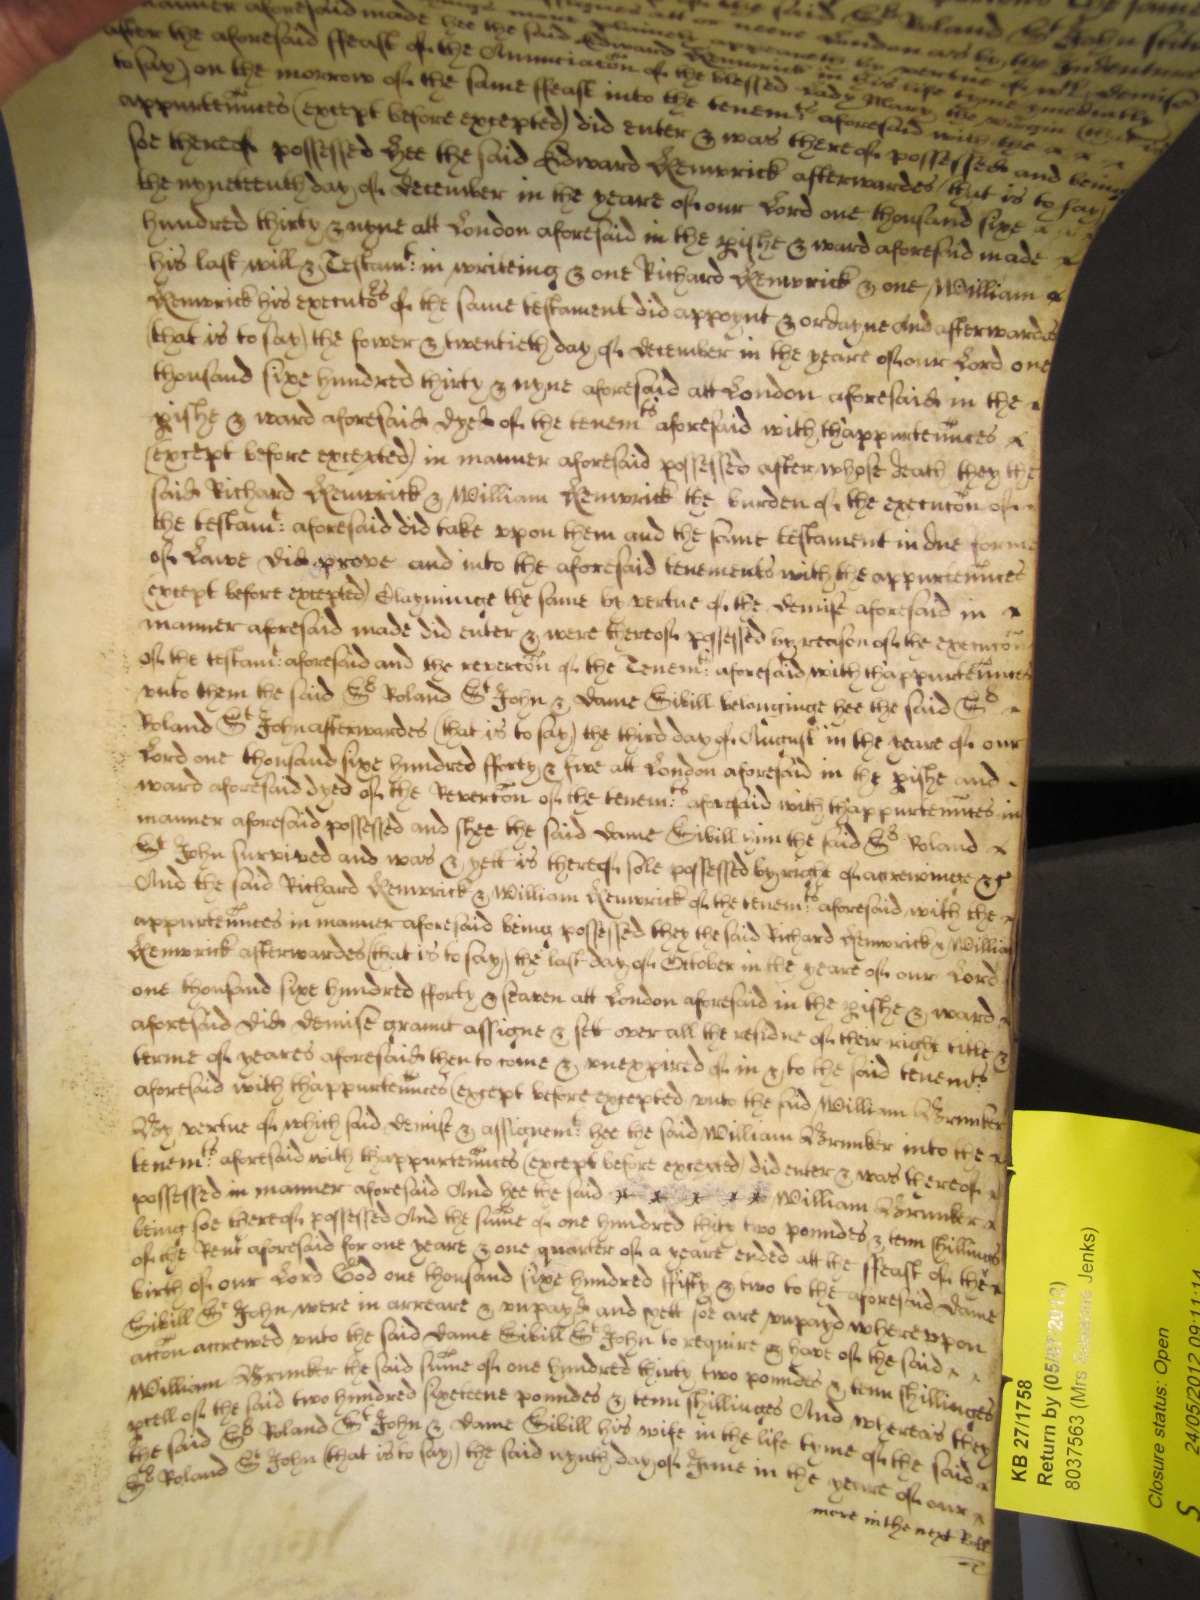 manner aforesaid made hee the said Edward Kenwrick in his life tyme ymediatly
after the aforesaid ffeast of the Anunciacōn of the blessed Lady Mary the virgin (that is
to say) on the morrow of the same ffeast into the tenemts aforesaid with the
appurtennces (except before excepted) did enter & was thereof possessed and being
soe thereof possessed hee the said Edward Kenwrick afterwardes (that is to say)
the nyneteenth day of December in the yeare of our Lord one thousand sixe
hundred thirty & nyne att London aforesaid in the pishe & ward aforesaid made
his last will & Testamt: in writeing & one Richard Kenwrick & one William
Kenwrick his executors of the same testament did appoynt & ordayne And afterwardes
(that is to say) the fower & twentieth day of December in the yeare of our Lord one
thousand sixe hundred thirty & nyne aforesaid att London aforesaid in the
pishe & ward aforesaid dyed of the tenemts aforesaid with thappurtennces
(except before excepted) in manner aforesaid possessed after whose death they the
said Richard Kenwrick & William Kenwrick the burden of the execucōn of
the testamt: aforesaid did take vpon them and the same testament in due forme
of Lawe did prove and into the aforesaid tenements with the appurtennces
(except before excepted) Clayminge the same by vertue of the demise aforesaid in
manner aforesaid made did enter & were thereof possessed by reason of the execucōn
of the testamt: aforesaid and the revercōn of the Tenemts: aforesaid with thappurtennces
vnto them the said Sr Roland St John & Dame Sibill belonginge hee the said Sr
Roland St John afterwardes (that is to say) the third day of August in the yeare of our
Lord one thousand sixe hundred fforty & five att London aforesaid in the pishe and
ward aforesaid dyed of the Revercōn of the tenemts: aforesaid with thappurtennces in
manner aforesaid possessed and shee the said Dame Sibill him the said Sr Roland
St John survived and was & yett is thereof sole possessed by right of accrewmt &c
And the said Richard Kenwrick & William Kenwrick of the tenemts: aforesaid with the
appurtennces in manner aforesaid being possessed they the said Richard Kenwrick & William
Kenwrick afterwardes (that is to say) the last day of October in the yeare of our Lord
one thousand sixe hundred fforty & seaven att London aforesaid in the pishe & ward
aforesaid did demise graunt assigne & sett over all the residue of their right title &
terme of yeares aforesaid then to come & vnexpired of in & to the said tenemts:
aforesaid with thappurtennces (except before excepted vnto the said William Brunker
By vertue of which said demise & assignemt: hee the said William Brunker into the
tenemts: aforesaid with thappurtennces (except before excepted) did enter & was thereof
possessed in manner aforesaid And hee the said William Brunker
being soe thereof possessed And the sume of one hundred thity two poundes & tenn shillings
of the Rent aforesaid for one yeare & one quarter of a yeare ended att the ffeast of the
birth of our Lord God one thousand sixe hundred ffifty & two to the aforesaid Dame
Sibill St John were in arreare & vnpayd and yett soe are vnpayd where vpon
accōn accrewed vnto the said Dame Sibill St John to require & have of the said
William Brunker the said sume of one hundred thirty two poundes & tenn shillinges
pcell of the said two hundred sixeteene poundes & tenn shillinges And whereas they
the said Sr Roland St John & Dame Sibill his wife in the life tyme of the said
Sr Roland St John (that is to say) the said nynth day of June in the yeare of our
more in the next Roll
KB 27/1758
Return by (05/07/2012)
8037563 (Mrs Jenks)
Closure status: Open
24/05/2012 09:11:14
S